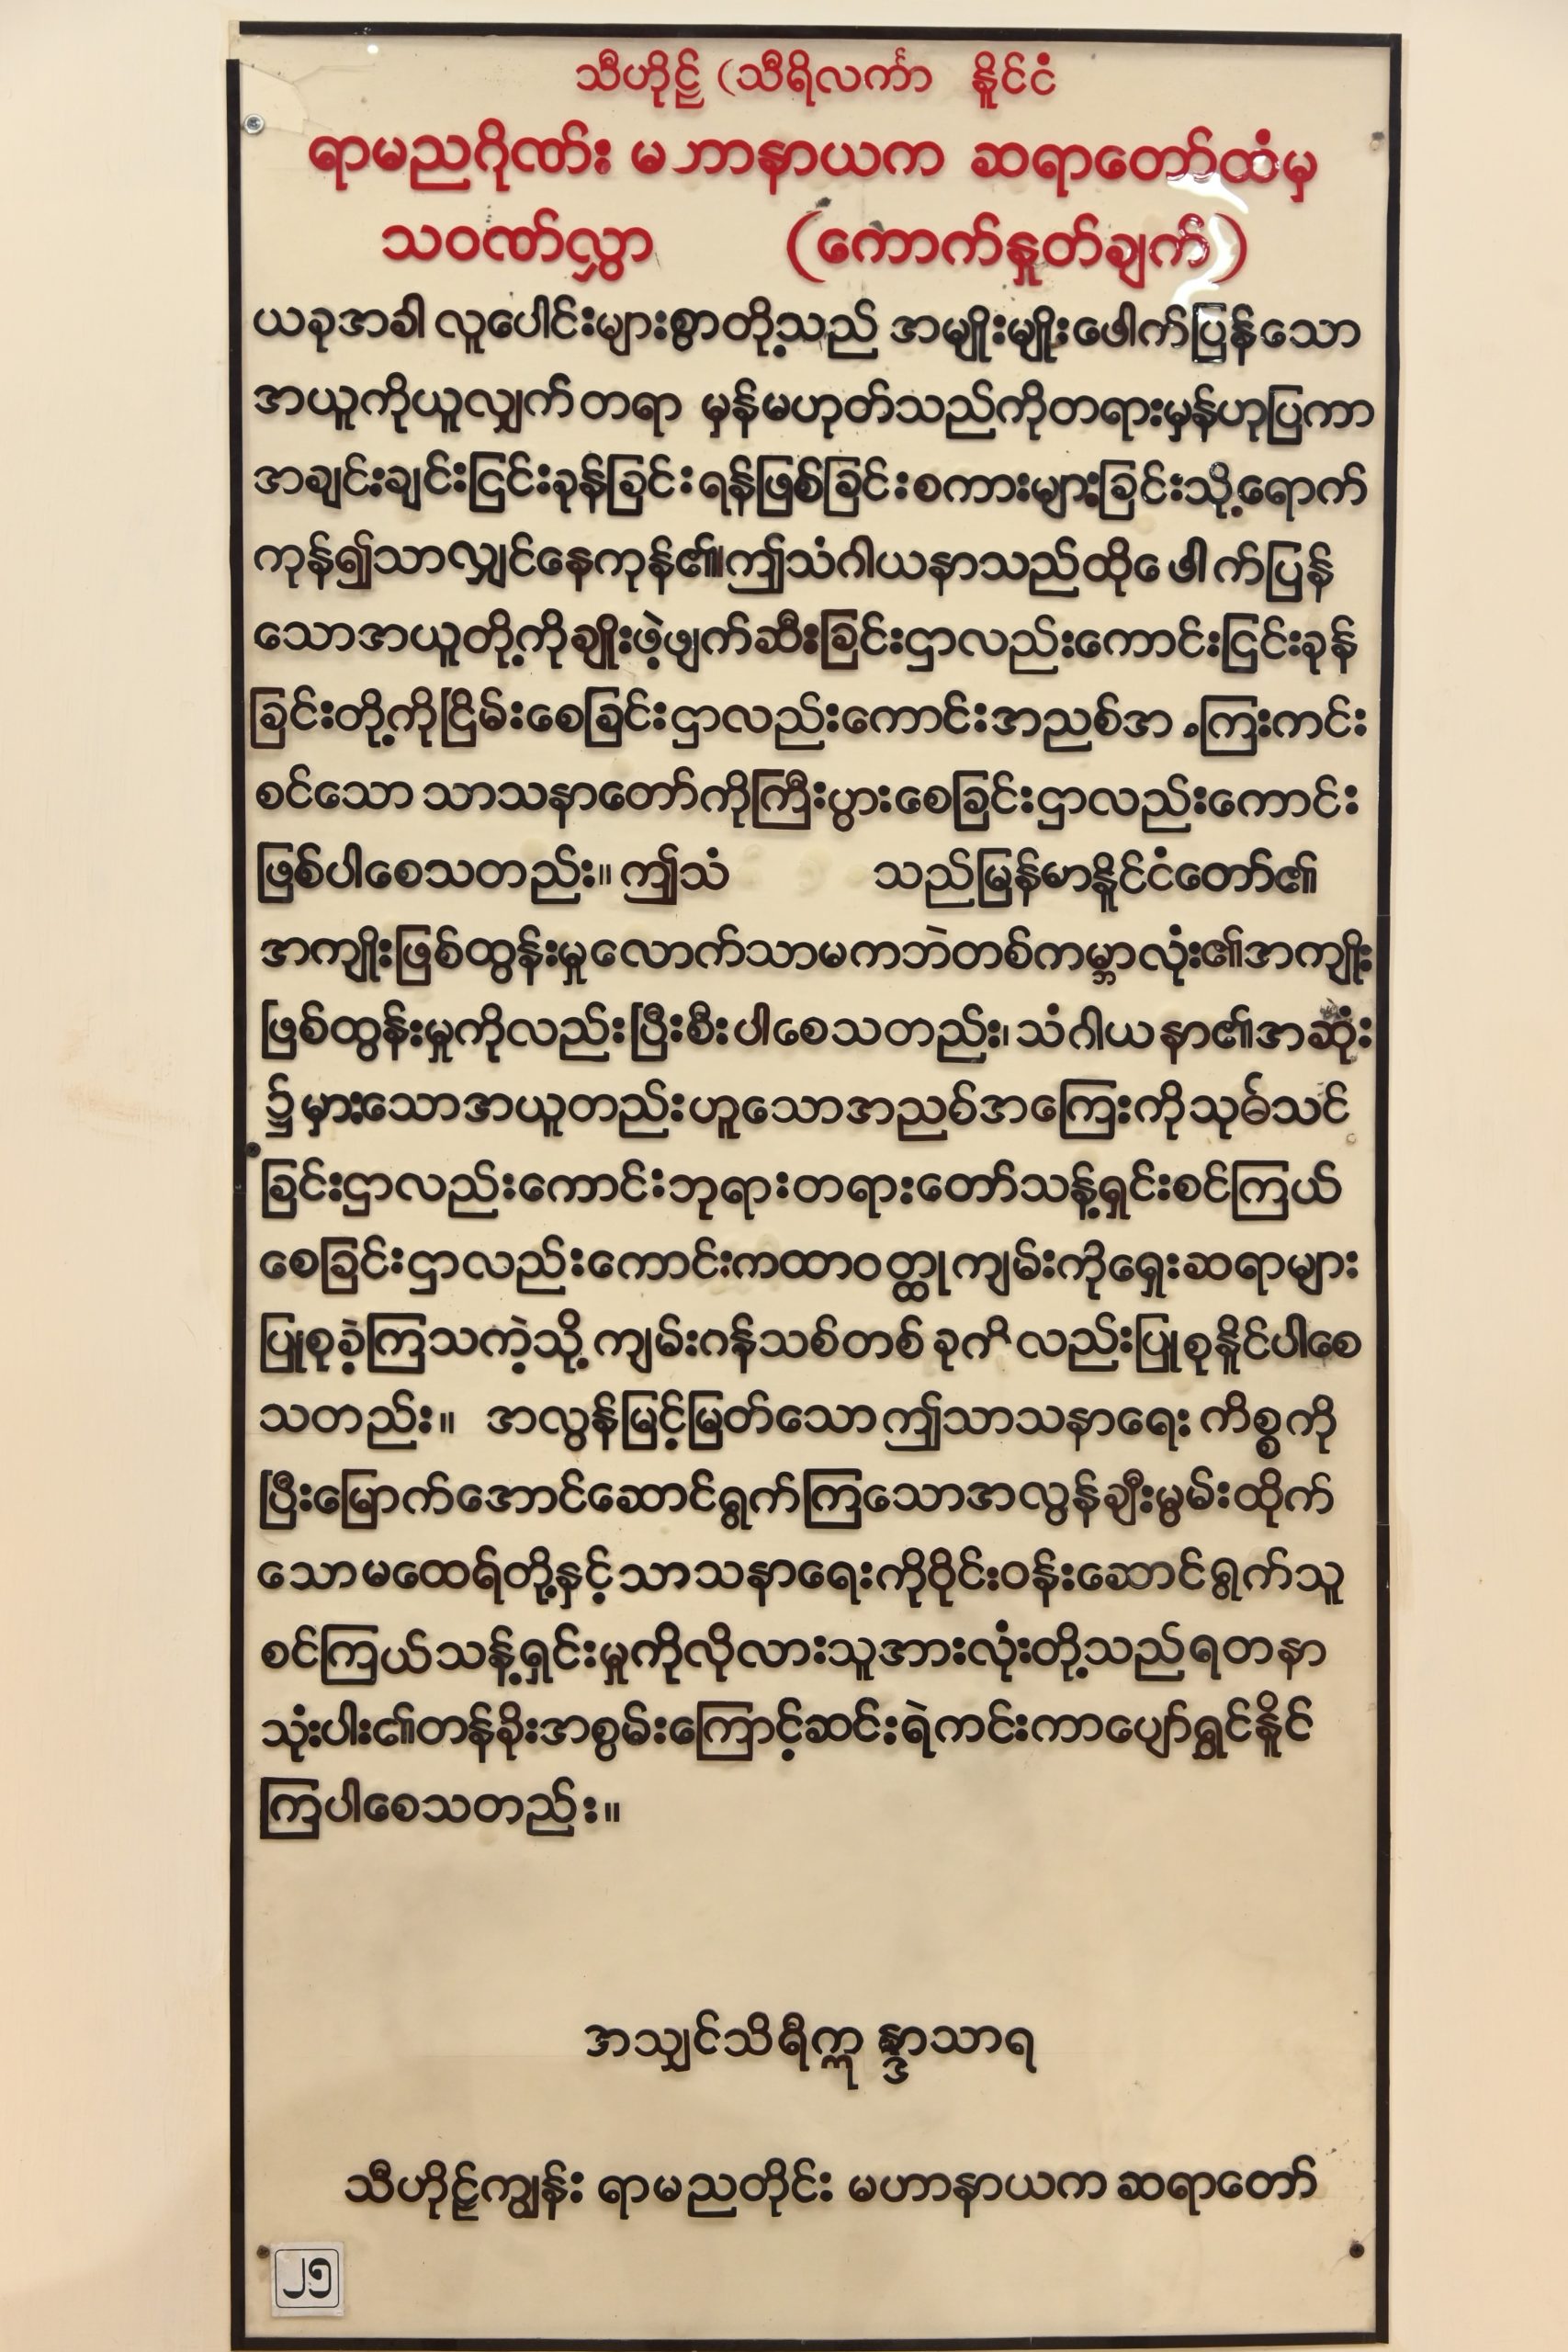 သီဟိုဠ် (သီရိလင်္ကာ နိူင်ငံ
ရာမညဂိုဏ်း မဘာနာယက ဆရာတော်ထံမှ
သဝဏ်လွှာ (ကောက်နှုတ်ချက်)
ယခုအခါ လူပေါင်းများစွာတို့သည် အမျိုးမျိုးဖေါက်ပြန်သော
အယူကိုယူလျှက် တရာ မှန်မဟုတ်သည်ကိုတရားမှန်ဟုပြကာ
အချင်းချင်းငြင်းခုန်ခြင်းရန်ဖြစ်ခြင်းစကားများခြင်းသို့ရောက်
ကုန်၍သာလျှင်နေကုန်၏။ဤသံဂါယနာသည်ထိုဖေါက်ပြန်
သောအယူတို့ကိုချိုးဖဲ့ဖျက်ဆီးခြင်းဌာလည်းကောင်းငြင်းခုန်
ခြင်းတို့ကိုငြိမ်းစေခြင်းဌာလည်းကောင်းအညစ်အ ကြးကင်း
စင်သော သာသနာတော်ကိုကြီးပွားစေခြင်းဌာလည်းကောင်း
ဖြစ်ပါစေသတည်း။ ဤသံ သည်မြန်မာနိူင်ငံတော်၏
အကျိုးဖြစ်ထွန်းမှုလောက်သာမကဘဲတစ်ကမ္ဘာလုံး၏အကျိုး
ဖြစ်ထွန်းမှုကိုလည်းပြီးစီးပါစေသတည်း၊သံဂါယနာ၏အဆုံး
၌မှားသောအယူတည်းဟူသောအညစ်အကြေးကိုသုဓ်သင်
ခြင်းဌာလည်းကောင်းဘုရားတရားတော်သန့်ရှင်းစင်ကြယ်
စေခြင်းဌာလည်းကောင်းကထာဝတ္ထုကျမ်းကိုရှေးဆရာများ
ပြုစုခဲ့ကြသကဲ့သို့ ကျမ်းဂန်သစ်တစ်ခုကိလည်းပြုစုနိူင်ပါစေ
သတည်း။ အလွန်မြင့်မြတ်သောဤသာသနာရေး ကိစ္စကို
ပြီးမြောက်အောင်ဆောင်ရွက်ကြသောအလွန်ချီးမွမ်းထိုက်
သောမထေရ်တို့နှင့်သာသနာရေးကိုဝိုင်းဝန်းဆောင်ရွက်သူ
စင်ကြယ်သန့်ရှင်းမှုကိုလိုလားသူအားလုံးတို့သည်ရတနာ
သုံးပါး၏တန်ခိုးအစွမ်းကြောင့်ဆင်းရဲကင်းကာပျော်ရွှင်နိူင်
ကြပါစေသတည်း။
အသျှင်သိရီဣန္ဒာသာရ
သီဟိုဠ်ကျွန်း ရာမညတိုင်း မဟာနာယက ဆရာတော်
၂၅